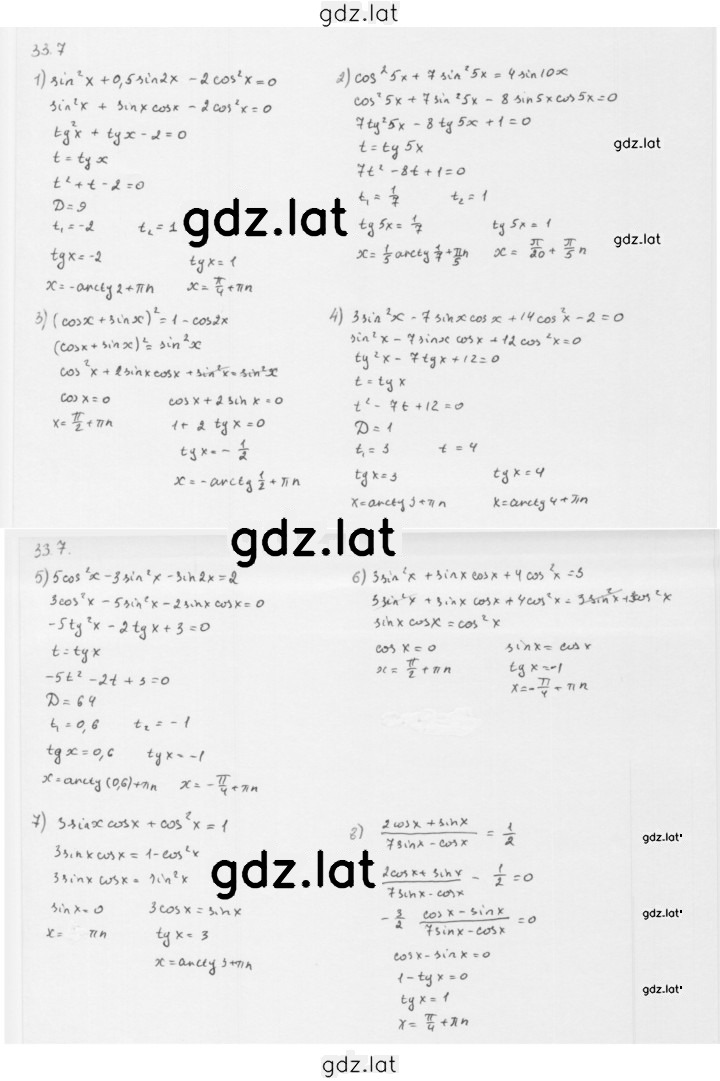 gdz.lat
33.7
1) sin²x + 0,5 sin2x - 2cos²x = 0
sin²x + sinx cosx - 2cos²x = 0
tg²x + tgx - 2 = 0
t = tgx
t² + t - 2 = 0
D = 9
t₁ = -2 t₂ = 1
tgx = -2 tgx = 1
x = -arctg2 + πn x = π/4 + πn
2) cos²5x + 7sin²5x = 4sin10x
cos²5x + 7sin²5x - 8sin5x cos5x = 0
7tg²5x - 8tg5x + 1 = 0
t = tg5x
7t² - 8t + 1 = 0
t₁ = 1/7 t₂ = 1
tg5x = 1/7 tg5x = 1
x = 1/5 arctg 1/7 + πn/5 x = π/20 + π/5 n
gdz.lat
gdz.lat
gdz.lat
3) (cosx + sinx)² = 1 - cos2x
(cosx + sinx)² = sin²x
cos²x + 2sinxcosx + sin²x = sin²x
cosx = 0 cosx + 2sinx = 0
x = π/2 + πn 1 + 2 tgx = 0
tgx = - 1/2
x = -arctg 1/2 + πn
4) 3sin²x - 7sinxcosx + 14cos²x - 2 = 0
sin²x - 7sinx cosx + 12cos²x = 0
tg²x - 7tgx + 12 = 0
t = tgx
t² - 7t + 12 = 0
D = 1
t₁ = 3 t = 4
tgx = 3 tgx = 4
x = arctg3 + πn x = arctg4 + πn
gdz.lat
33.7.
5) 5cos²x - 3sin²x - sin2x = 2
3cos²x - 5sin²x - 2sinxcosx = 0
-5tg²x - 2tgx + 3 = 0
t = tgx
-5t² - 2t + 3 = 0
D = 64
t₁ = 0,6 t₂ = -1
tgx = 0,6 tgx = -1
x = arctg(0,6) + πn x = - π/4 + πn
6) 3sin²x + sinxcosx + 4cos²x = 3
3sin²x + sinx cosx + 4cos²x = 3sin²x + 3cos²x
sinx cosx = cos²x
cosx = 0 sinx = cosx
x = π/2 + πn tgx = -1
x = - π/4 + πn
7) 3sinxcosx + cos²x = 1
3sinxcosx = 1 - cos²x
3sinxcosx = sin²x
sinx = 0 3cosx = sinx
x = πn tgx = 3
x = arctg3 + πn
gdz.lat
8) (2cosx + sinx)/(7sinx - cosx) = 1/2
(2cosx + sinx)/(7sinx - cosx) - 1/2 = 0
- 3/2 (cosx - sinx)/(7sinx - cosx) = 0
cosx - sinx = 0
1 - tgx = 0
tgx = 1
x = π/4 + πn
gdz.lat
gdz.lat
gdz.lat
gdz.lat